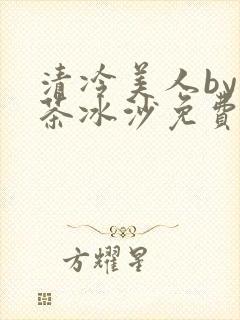 清冷美人by
茶冰沙免費
方耀星